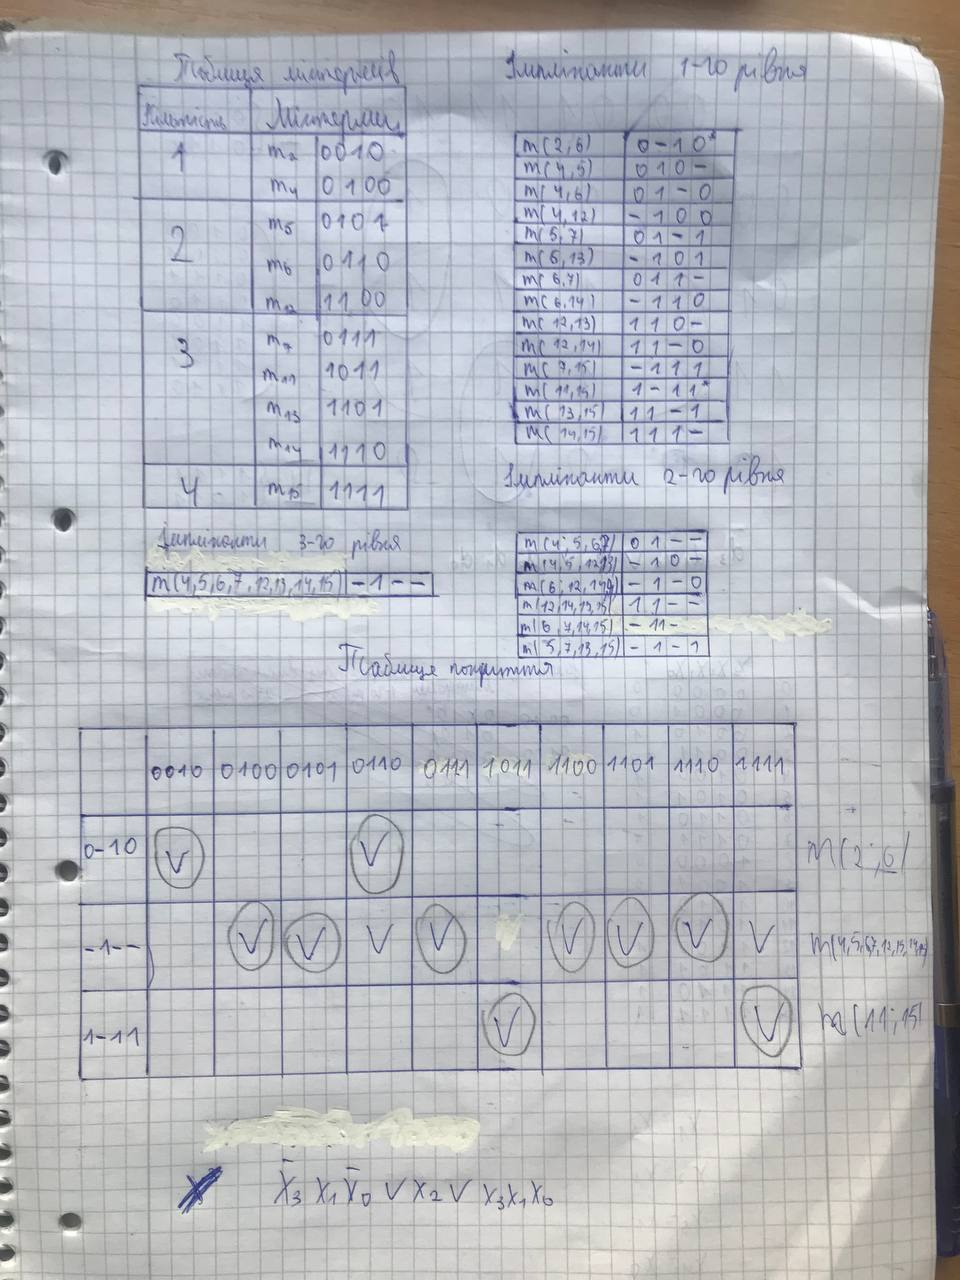 Таблиця мінтермів
Кількість Мінтерми
1 m2 0010
m4 0100
2 m5 0101
m6 0110
m12 1100
3 m7 0111
m11 1011
m13 1101
m14 1110
4 m15 1111
Імпліканти 1-го рівня
m(2,6) 0-10*
m(4,5) 010-
m(4,6) 01-0
m(4,12) -100
m(5,7) 01-1
m(6,13) -101
m(6,7) 011-
m(6,14) -110
m(12,13) 110-
m(12,14) 11-0
m(7,15) -111
m(11,15) 1-11*
m(13,15) 11-1
m(14,15) 111-
Імпліканти 2-го рівня
m(4,5,6,7) 01--
m(4,5,12,13) -10-
-1-0
m(12,14,13,15) 11--
m(6,7,14,15) -11-
m(5,7,13,15) -1-1
Імпліканти 3-го рівня
m(4,5,6,7,12,13,14,15) -1--
Таблиця покриття
0010 0100 0101 0110 0111 1011 1100 1101 1110 1111
0-10 V V m(2;6)
-1-- V V V V V V V V m(4,5,6,7,12,13,14,15)
1-11 V V m(11;15)
X̄3 X1 X̄0 V X2 V X3X1X0